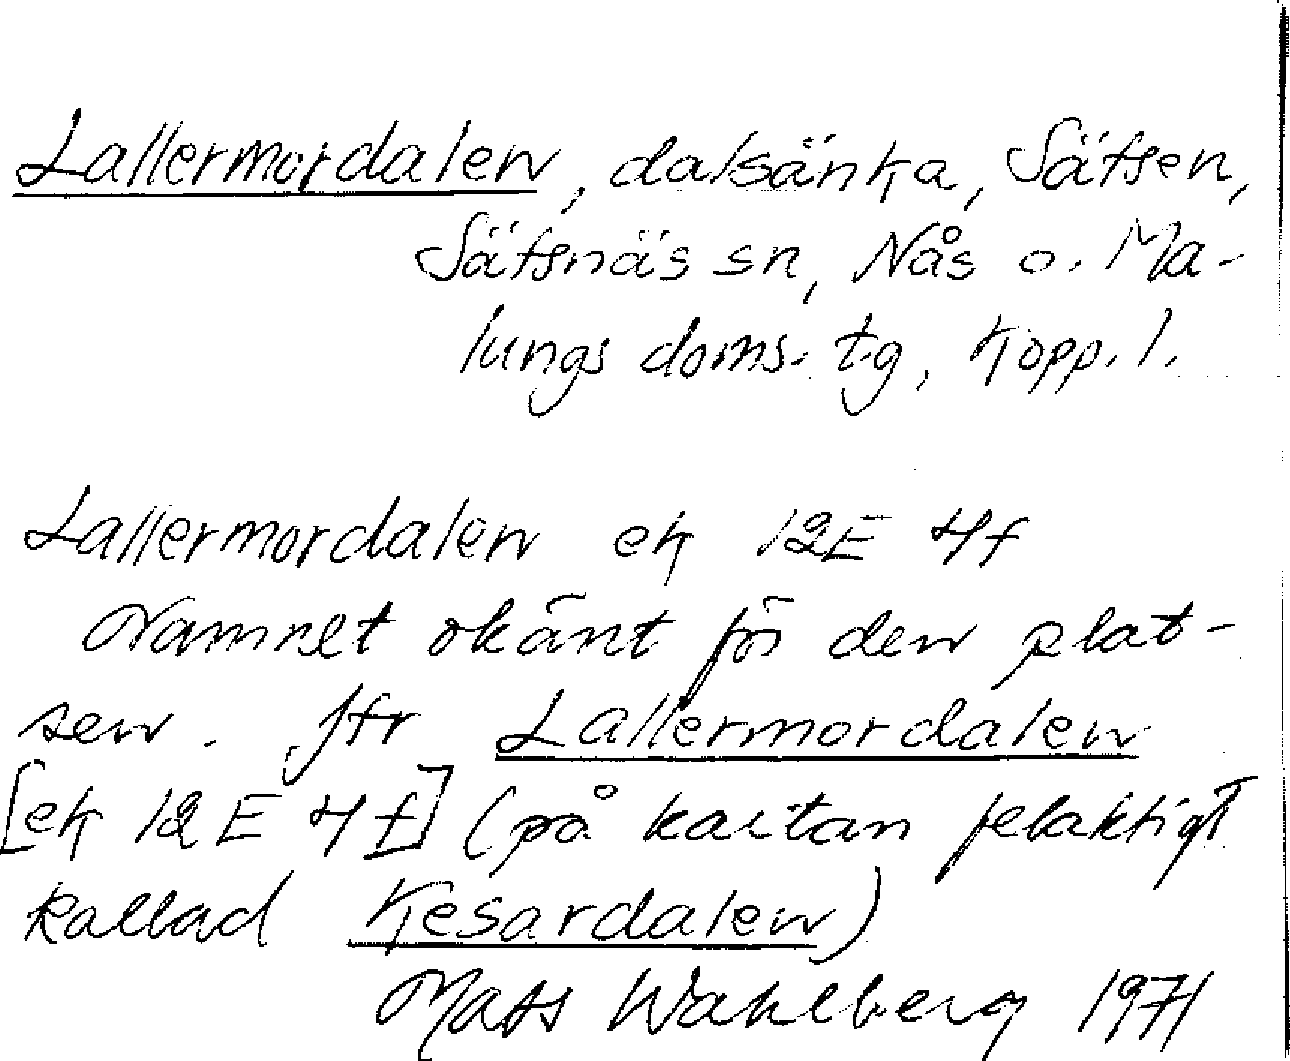 Lallermordalen, dalsänka, Sätsen,
Sätsnäs sn, Nås o. Ma-
lungs doms. tg, Kopp. l.
Lallermordalen ek 12E 4f
Namnet okänt för den plat-
sen. Jfr Lallermordalen
[ek 12E 4f] (på kartan felaktigt
kallad Kesardalen)
Mats Wahlberg 1971